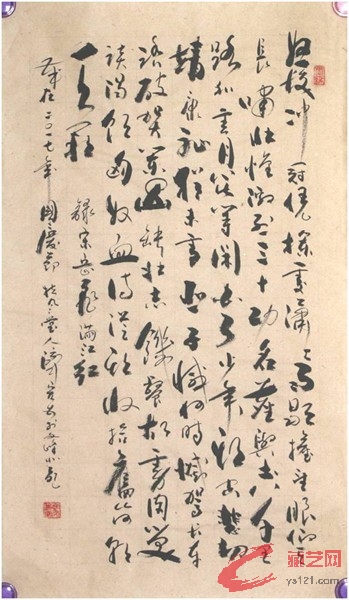 怒发冲冠凭栏處瀟瀟雨歇擡望眼仰天
長啸壮怀激烈三十功名塵與土八千里
路和雲月莫等闲白了少年頭空悲切
靖康耻猶未雪臣子憾何时憾驾长车
踏破贺蘭山缺壮志饑餐胡虏肉笑
谈渴饮匈奴血待從头收拾舊山河朝
天阙
錄宋岳飛满江红
二〇一七年國慶節
藏艺网
ys121.com